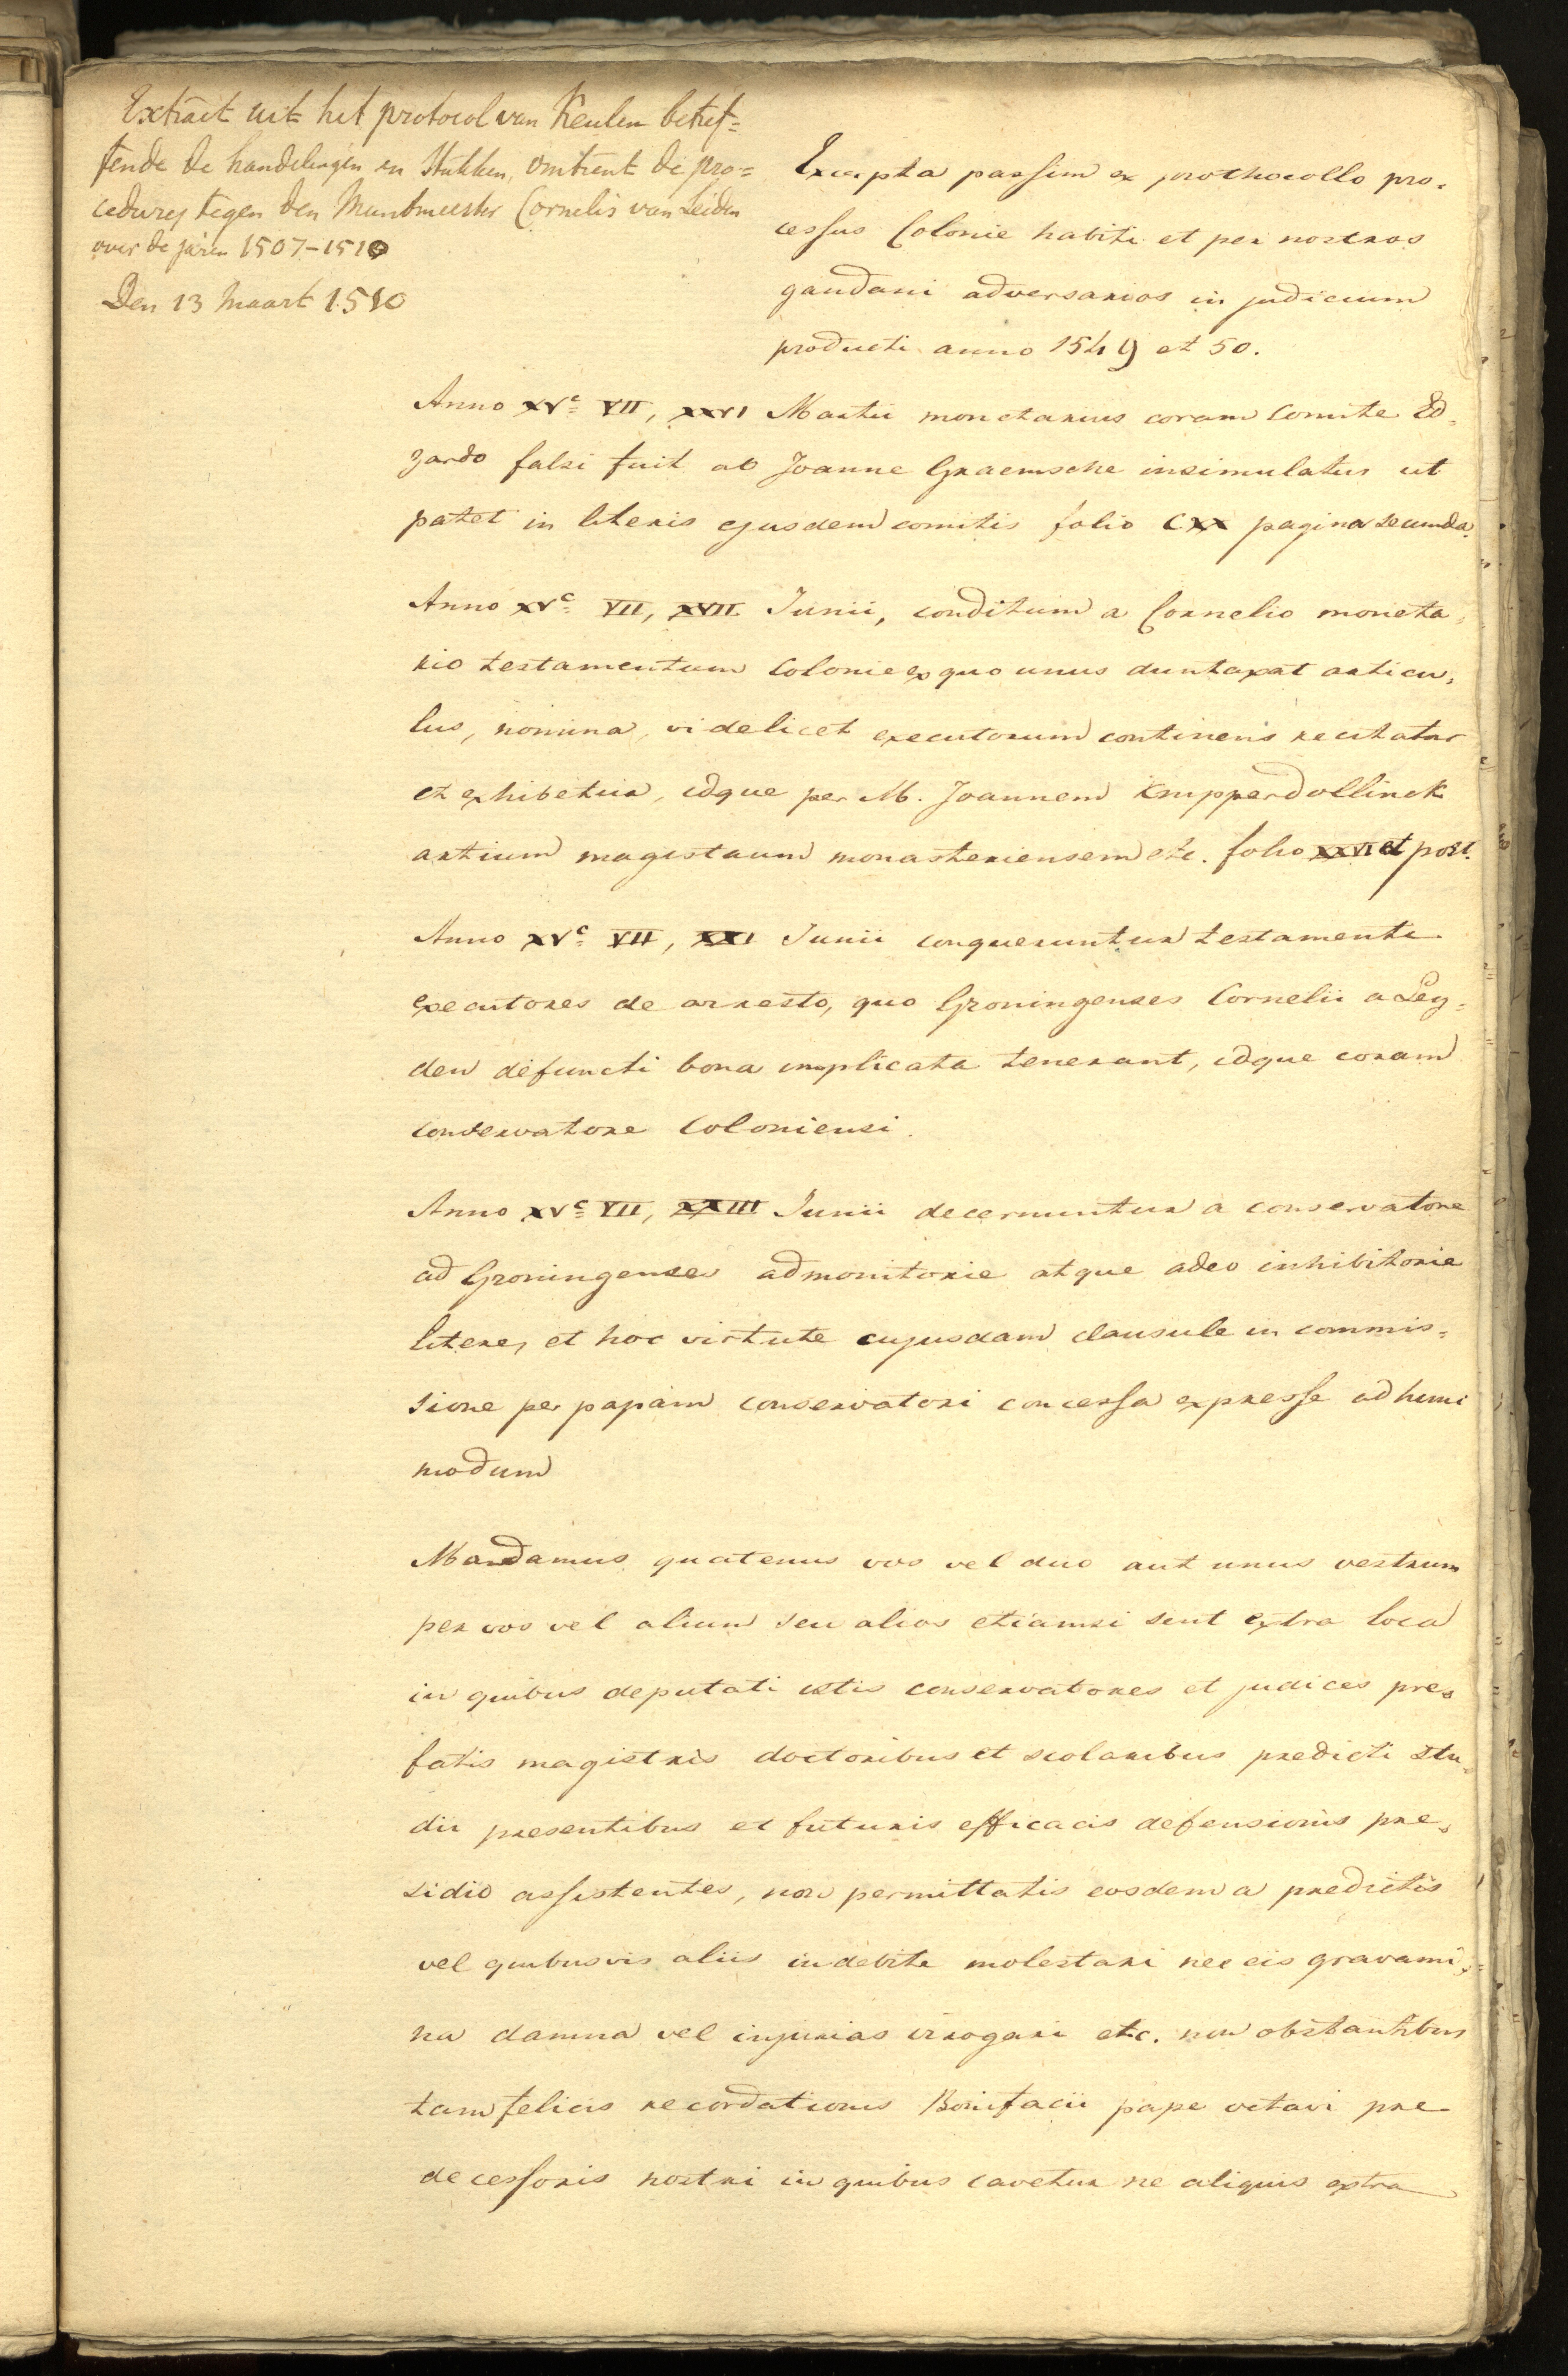 Extract uit het protocol van Keulen betref=
fende de handelingen en Stukken, omtrent de pro=
cedures tegen den Muntmeester Cornelis van Leiden
over de jaren 1507-1510
Den 13 Maart 1510
Excepta passim ex prothocollo pro,
cessus Colonie habiti et per nostros
gaudani adversarios in judicium
producti anno 1549 et 50.
Anno XVc= VII, XXVI Martii monetarius coram Comite Ed,
zardo falsi fuit ab Joanne Graemsche insimulatus ut
patet in literis ejusdem comitis folio CXX pagina secunda.
Anno XVc= VII, XVII Junii, conditum a Cornelio moneta,
rio testamentum Colonie ex quo unus duntaxat articu,
lus, nomina, videlicet executorum continens recitatur
et exhibetur, idque per M. Joannem Knipperdollinck
artium magistrum monasteriensem etc. folio XXVI et post.
Anno XVc= VII, XXI Junii conqueruntur testamenti
executores de arresto, quo Groningenses Cornelii a Ley=
den defuncti bona implicata tenerant, idque coram
conservatore Coloniensi.
Anno XVc= VII, XXIII Junii decernuntur a conservatore
ad Groningenses admonitorie atque adeo inhibitorie
litere, et hoc virtute cujusdam clausule in commis=
sione per papam conservatori concessa expresse ad hunc
modum
Mandamus quatenus vos vel duo aut unus vestrum
per vos vel alium seu alios etiamsi sint extra loca
in quibus deputati estis conservatores et judices pre,
fatis magistris doctoribus et scolaribus predicti stu,
dii presentibus et futuris efficacis defensionis pre,
sidio assistentes, non permittatis eosdem a predictis
vel quibusvis aliis indebite molestari nec eis gravami,
na damna vel injurias irrogari etc. non obstantibus
tam felicis recordationis Bonifacii pape octavi pre-
decessoris nostri in quibus cavetur ne aliquis extra